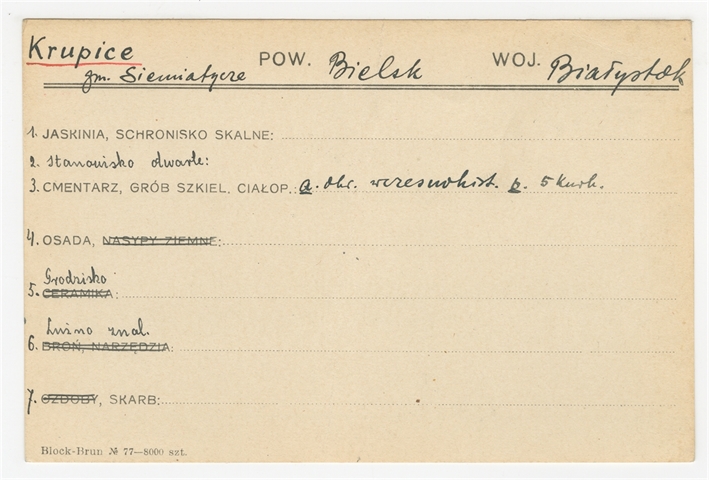 Krupice POW. Bielsk WOJ. Białystok
gm. Siemiatycze
1. JASKINIA, SCHRONISKO SKALNE:
2. Stanowisko otwarte:
3. CMENTARZ, GRÓB SZKIEL. CIAŁOP.: a. okr. wczesnohist. p. 5 kurh.
4. OSADA, NASYPY ZIEMNE:
Grodzisko
5. CERAMIKA:
Luźno znal.
6. BROŃ, NARZĘDZIA:
7. OZDOBY, SKARB:
Block-Brun № 77—8000 szt.